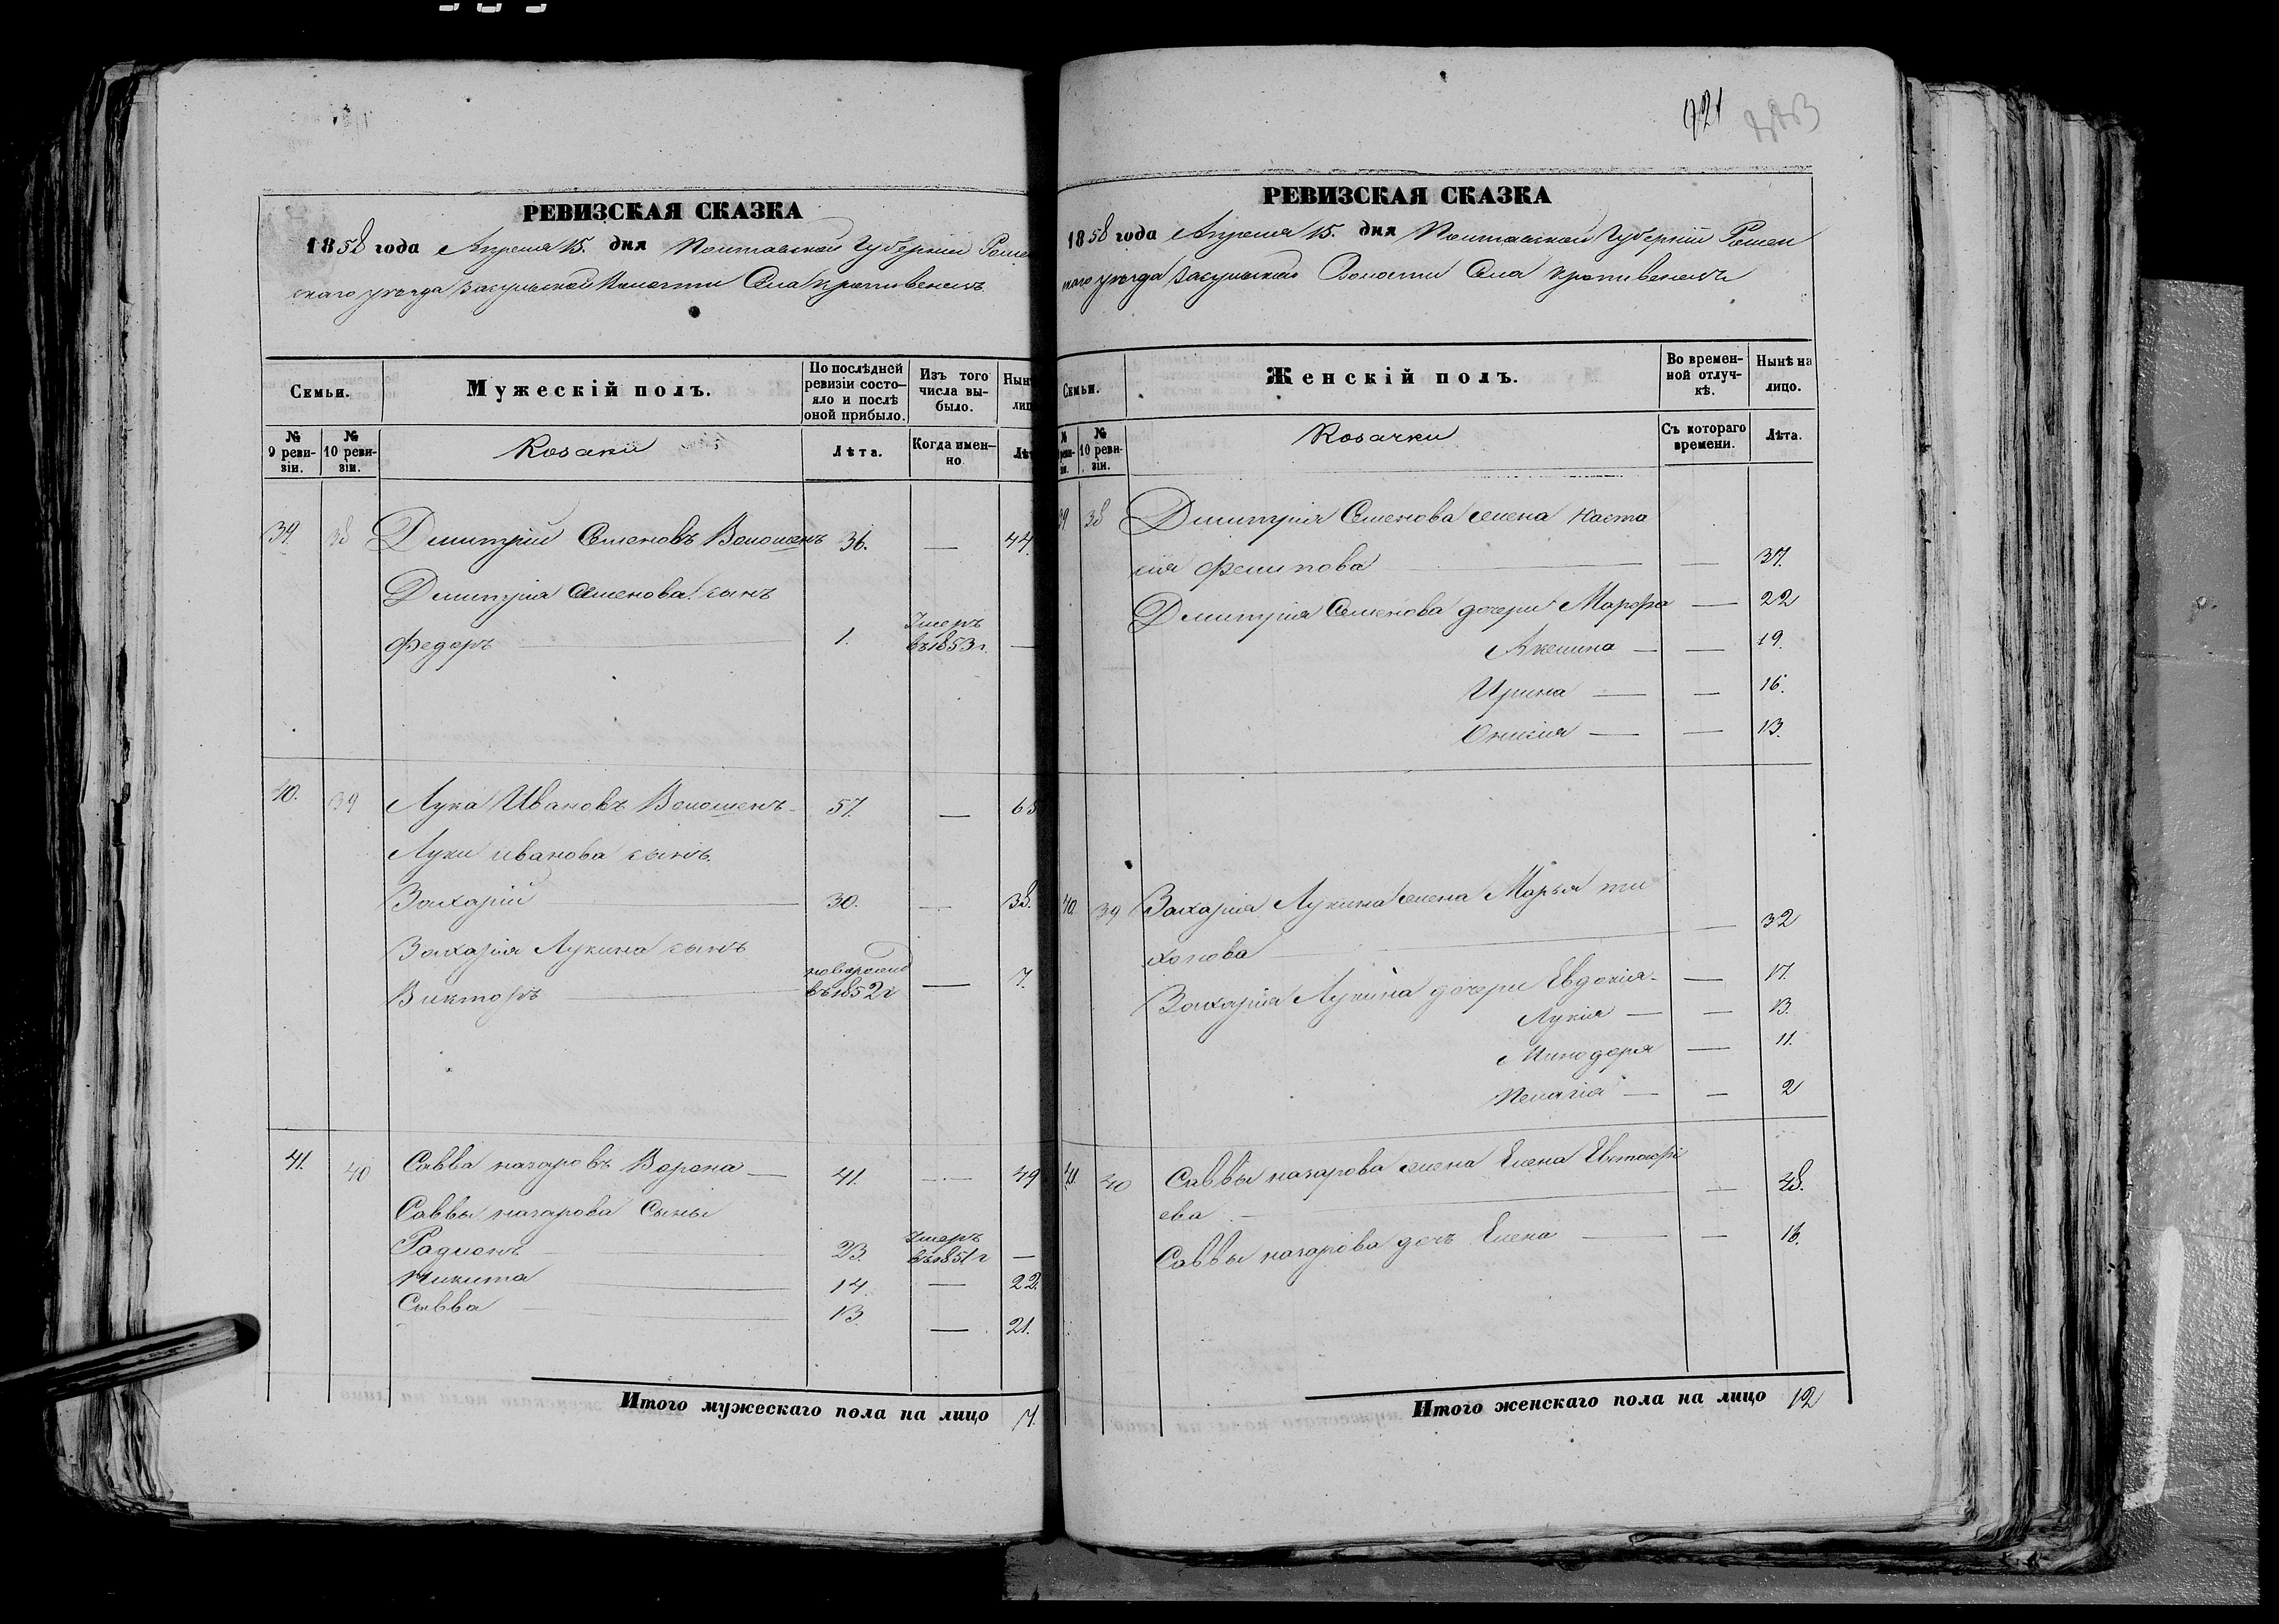 РЕВИЗСКАЯ СКАЗКА
1858 года Апреля 15. дня Полтавской Губерніи Роме
скаго уѣзда Засульской Волости Села Крапивенецъ
Семьи.
Мужескій полъ.
По послѣдней ревизіи состояло и послѣ оной прибыло.
Изъ того числа выбыло.
Нын
лиц
№ 9 ревизіи.
№ 10 ревизіи.
Козаки
Лѣта.
Когда именно
Лѣт
39. 38 Дмитрій Семеновъ Волошенъ 36. — 44.
Дмитрія Семенова сынъ
Федоръ — 1. Умеръ въ 1853 г. —
40. 39 Лука Ивановъ Волошенъ 57. — 65
Луки Иванова сынъ.
Захарій — 30. — 38.
Захарія Лукина сынъ
Викторъ — новорожд въ 1852 г — 7.
41. 40 Савва Назаровъ Ворона — 41. — 49
Саввы Назарова Сыны
Радионъ — 23. Умеръ въ 1851 г —
Никита — 14. — 22.
Савва — 13. — 21.
Итого мужескаго пола на лицо 7.
921
РЕВИЗСКАЯ СКАЗКА
1858 года Апреля 15. дня Полтавской Губерніи Ромен
скаго уѣзда Засульской Волости Села Крапивенецъ
Семьи.
Женскій полъ.
Во временной отлучкѣ.
Нынѣ на лицо.
№ 10 ревизіи.
Козачки
Съ котораго времени.
Лѣта.
39 38 Дмитрія Семенова жена Наста
сія Филипова — — 37.
Дмитрія Семенова дочери Марфа — 22
Акилина — — 19.
Ирина — — 16.
Онисия — — 13.
40. 39 Захарія Лукина жена Марья ти
хонова — — 32
Захарія Лукина дочери Евдокія — 17.
Лукія — — 13.
Минодора — 11.
Пелагія — — 2
41. 40 Саввы Назарова жена Елена Евстафі
ева — — 48.
Саввы Назарова дочь Елена — — 16.
Итого женскаго пола на лицо 12